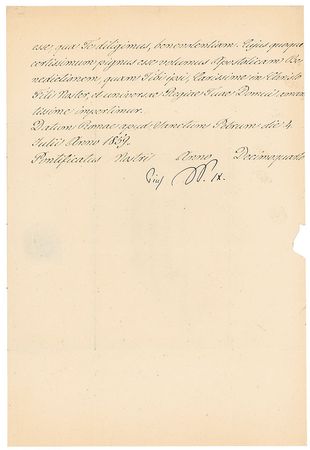 esse, qua Te diligimus, benevolentiam. Cujus quoque
certissimum pignus esse volumus Apostolicam Be-
nedictionem, quam Tibi ipsi, Carissime in Christo
Fili Noster, et universae Regiae Tuae Domui, aman-
tissime impertimur.
Datum Romae apud Sanctum Petrum die 4
Julii Anno 1859.
Pontificatus Nostri Anno Decimoquarto
Pius PP. IX.